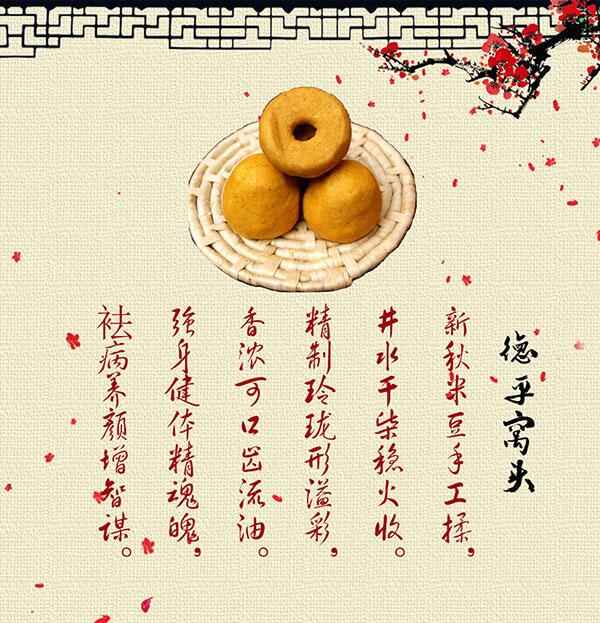 德平窝头
新秋米豆手工揉，
井水干柴稳火收。
精制玲珑形溢彩，
香浓可口齿流油。
强身健体精魂魄，
祛病养颜增智谋。